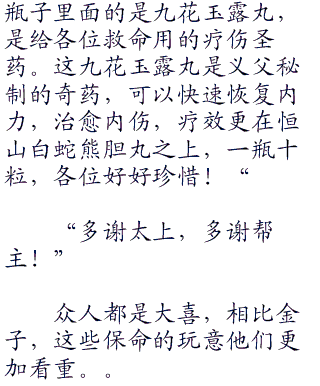 瓶子里面的是九花玉露丸，
是给各位救命用的疗伤圣
药。这九花玉露丸是义父秘
制的奇药，可以快速恢复内
力，治愈内伤，疗效更在恒
山白蛇熊胆丸之上，一瓶十
粒，各位好好珍惜！“
“多谢太上，多谢帮
主！”
众人都是大喜，相比金
子，这些保命的玩意他们更
加看重。。